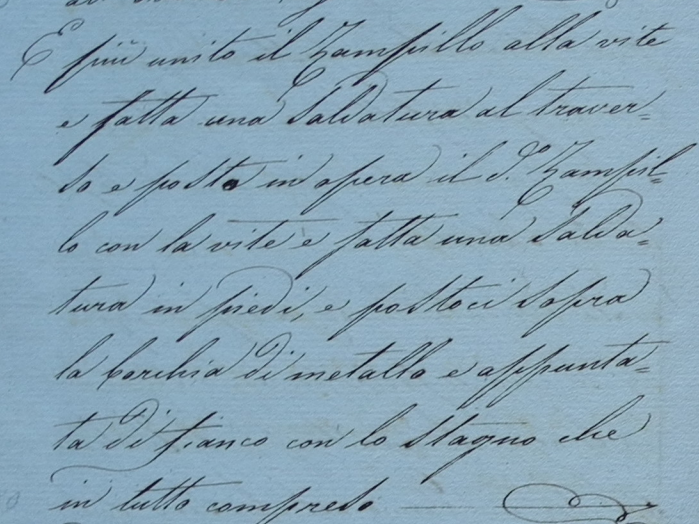 E più unito il Zampillo alla vite
e fatta una Saldatura al traver=
so e posto in opera il d.° Zampil=
lo con la vite e fatta una Salda=
tura in piedi, e postoci sopra
la borchia di metallo e appunta=
ta di fianco con lo stagno che
in tutto compreso